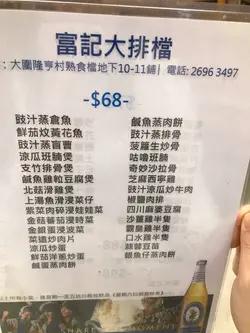 富記大排檔
：大圍隆亨村熟食檔地下10-11鋪 | 電話: 2696 3497
-$68-
豉汁蒸倉魚
鮮茄炆黃花魚
豉汁蒸盲曹
涼瓜斑腩煲
支竹排骨煲
鹹魚雞粒豆腐煲
北菇滑雞煲
上湯魚滑浸菜仔
紫菜肉碎浸娃娃菜
金菇蕃茄浸時菜
金銀蛋浸波菜
菜遠炒肉片
涼瓜炒蛋
鮮茄洋蔥炒蛋
鹹蛋蒸肉餅
鹹魚蒸肉餅
豉汁蒸排骨
菠蘿生炒骨
咕嚕班腩
奇妙沙拉骨
芝麻西寧雞
豉汁涼瓜炒牛肉
椒鹽肉排
四川麻婆豆腐
沙薑雞
霸皇雞半隻
口水雞半隻
蒜蓉豆苗
銀魚仔蒸肉餅